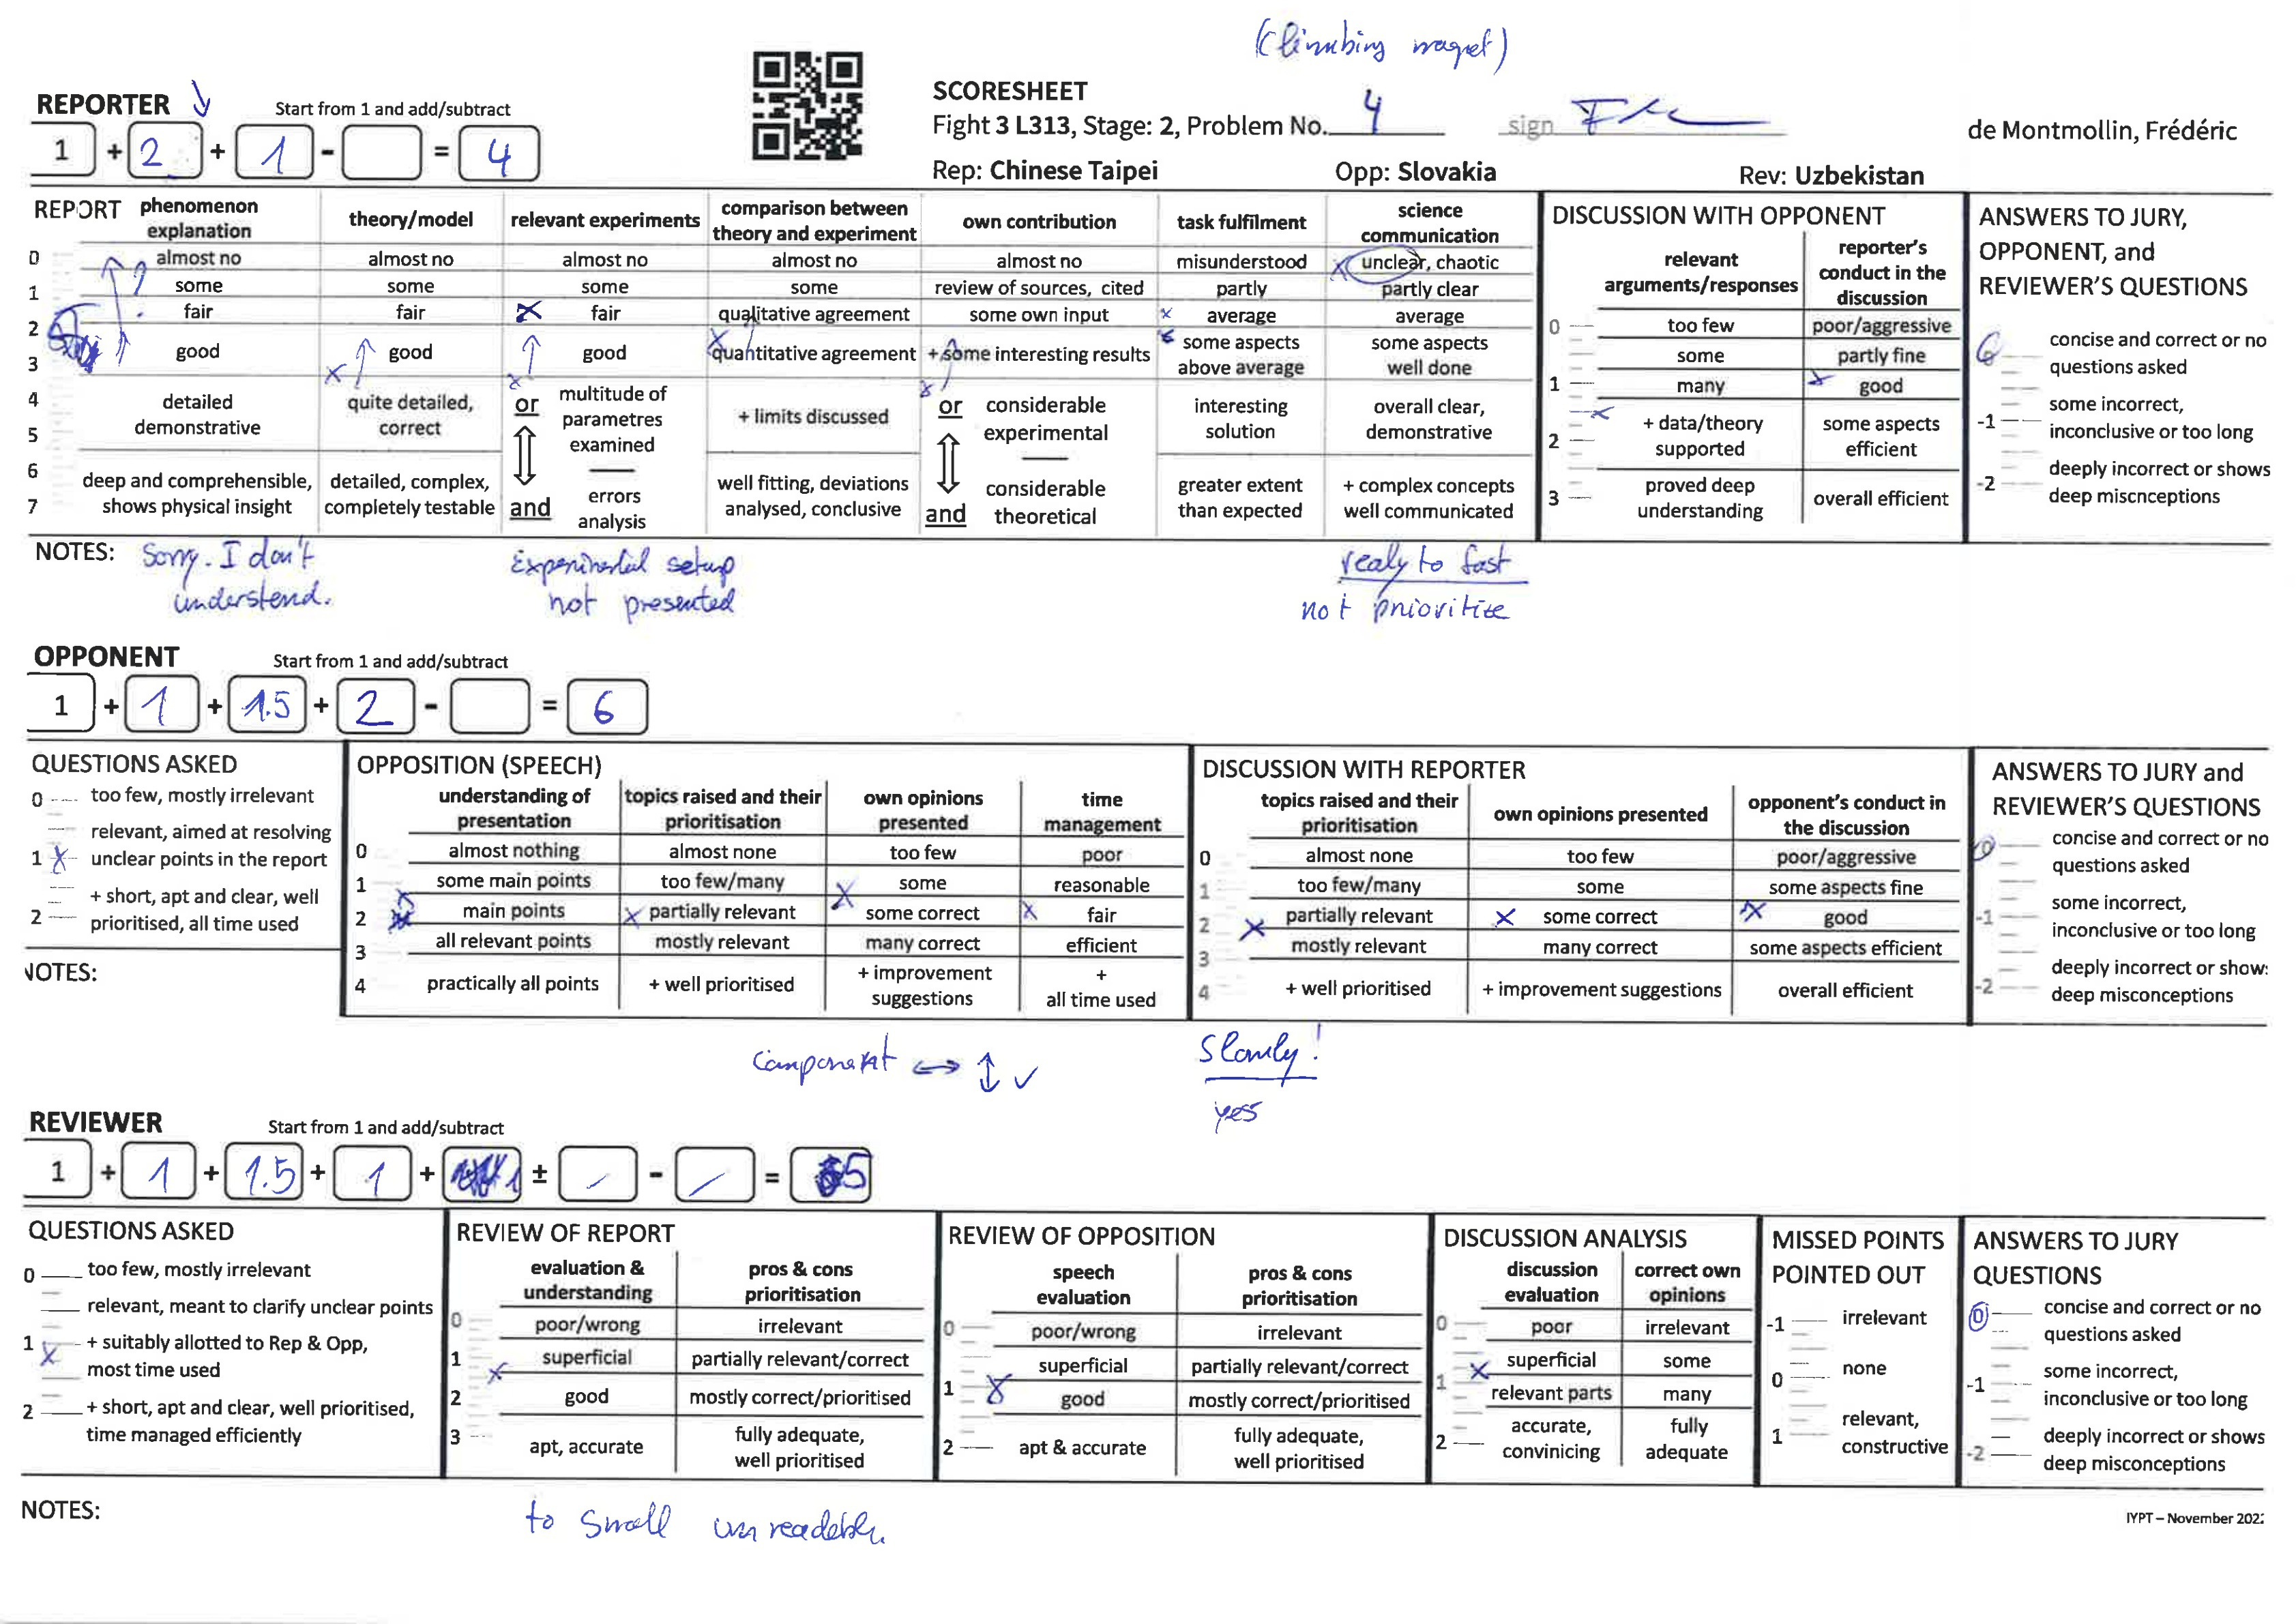 (Climbing magnet)
REPORTER Start from 1 and add/subtract
1 + 2 + 1 - = 4
SCORESHEET
Fight 3 L313, Stage: 2, Problem No. 4 sign
de Montmollin, Frédéric
Rep: Chinese Taipei Opp: Slovakia Rev: Uzbekistan
REPORT
phenomenon explanation
theory/model
relevant experiments
comparison between theory and experiment
own contribution
task fulfilment
science communication
0 almost no almost no almost no almost no almost no misunderstood unclear, chaotic
1 some some some some review of sources, cited partly partly clear
2 fair fair fair qualitative agreement some own input average average
3 good good good quantitative agreement + some interesting results some aspects above average some aspects well done
4 5 detailed demonstrative quite detailed, correct or multitude of parametres examined + limits discussed or considerable experimental interesting solution overall clear, demonstrative
6 7 deep and comprehensible, shows physical insight detailed, complex, completely testable and errors analysis well fitting, deviations analysed, conclusive and considerable theoretical greater extent than expected + complex concepts well communicated
DISCUSSION WITH OPPONENT
relevant arguments/responses reporter's conduct in the discussion
0 too few poor/aggressive
some partly fine
1 many good
2 + data/theory supported some aspects efficient
3 proved deep understanding overall efficient
ANSWERS TO JURY, OPPONENT, and REVIEWER'S QUESTIONS
concise and correct or no questions asked
-1 some incorrect, inconclusive or too long
-2 deeply incorrect or shows deep miscnceptions
NOTES: Sorry. I don't understend.
Experimental setup not presented
realy to fast
not prioritize
OPPONENT Start from 1 and add/subtract
1 + 1 + 1.5 + 2 - = 6
QUESTIONS ASKED
0 too few, mostly irrelevant
1 relevant, aimed at resolving unclear points in the report
2 + short, apt and clear, well prioritised, all time used
NOTES:
OPPOSITION (SPEECH)
understanding of presentation topics raised and their prioritisation own opinions presented time management
0 almost nothing almost none too few poor
1 some main points too few/many some reasonable
2 main points partially relevant some correct fair
3 all relevant points mostly relevant many correct efficient
4 practically all points + well prioritised + improvement suggestions + all time used
DISCUSSION WITH REPORTER
topics raised and their prioritisation own opinions presented opponent's conduct in the discussion
0 almost none too few poor/aggressive
1 too few/many some some aspects fine
2 partially relevant some correct good
3 mostly relevant many correct some aspects efficient
4 + well prioritised + improvement suggestions overall efficient
ANSWERS TO JURY and REVIEWER'S QUESTIONS
0 concise and correct or no questions asked
-1 some incorrect, inconclusive or too long
-2 deeply incorrect or show: deep misconceptions
Component ↔ ↕ ✓
Slowly!
yes
REVIEWER Start from 1 and add/subtract
1 + 1 + 1.5 + 1 + 1 ± - = 5
QUESTIONS ASKED
0 too few, mostly irrelevant
relevant, meant to clarify unclear points
1 + suitably allotted to Rep & Opp, most time used
2 + short, apt and clear, well prioritised, time managed efficiently
REVIEW OF REPORT
evaluation & understanding pros & cons prioritisation
0 poor/wrong irrelevant
1 superficial partially relevant/correct
2 good mostly correct/prioritised
3 apt, accurate fully adequate, well prioritised
REVIEW OF OPPOSITION
speech evaluation pros & cons prioritisation
0 poor/wrong irrelevant
superficial partially relevant/correct
1 good mostly correct/prioritised
2 apt & accurate fully adequate, well prioritised
DISCUSSION ANALYSIS
discussion evaluation correct own opinions
0 poor irrelevant
superficial some
1 relevant parts many
2 accurate, convinicing fully adequate
MISSED POINTS POINTED OUT
-1 irrelevant
0 none
1 relevant, constructive
ANSWERS TO JURY QUESTIONS
0 concise and correct or no questions asked
-1 some incorrect, inconclusive or too long
-2 deeply incorrect or shows deep misconceptions
NOTES: to small unreadable.
IYPT – November 202